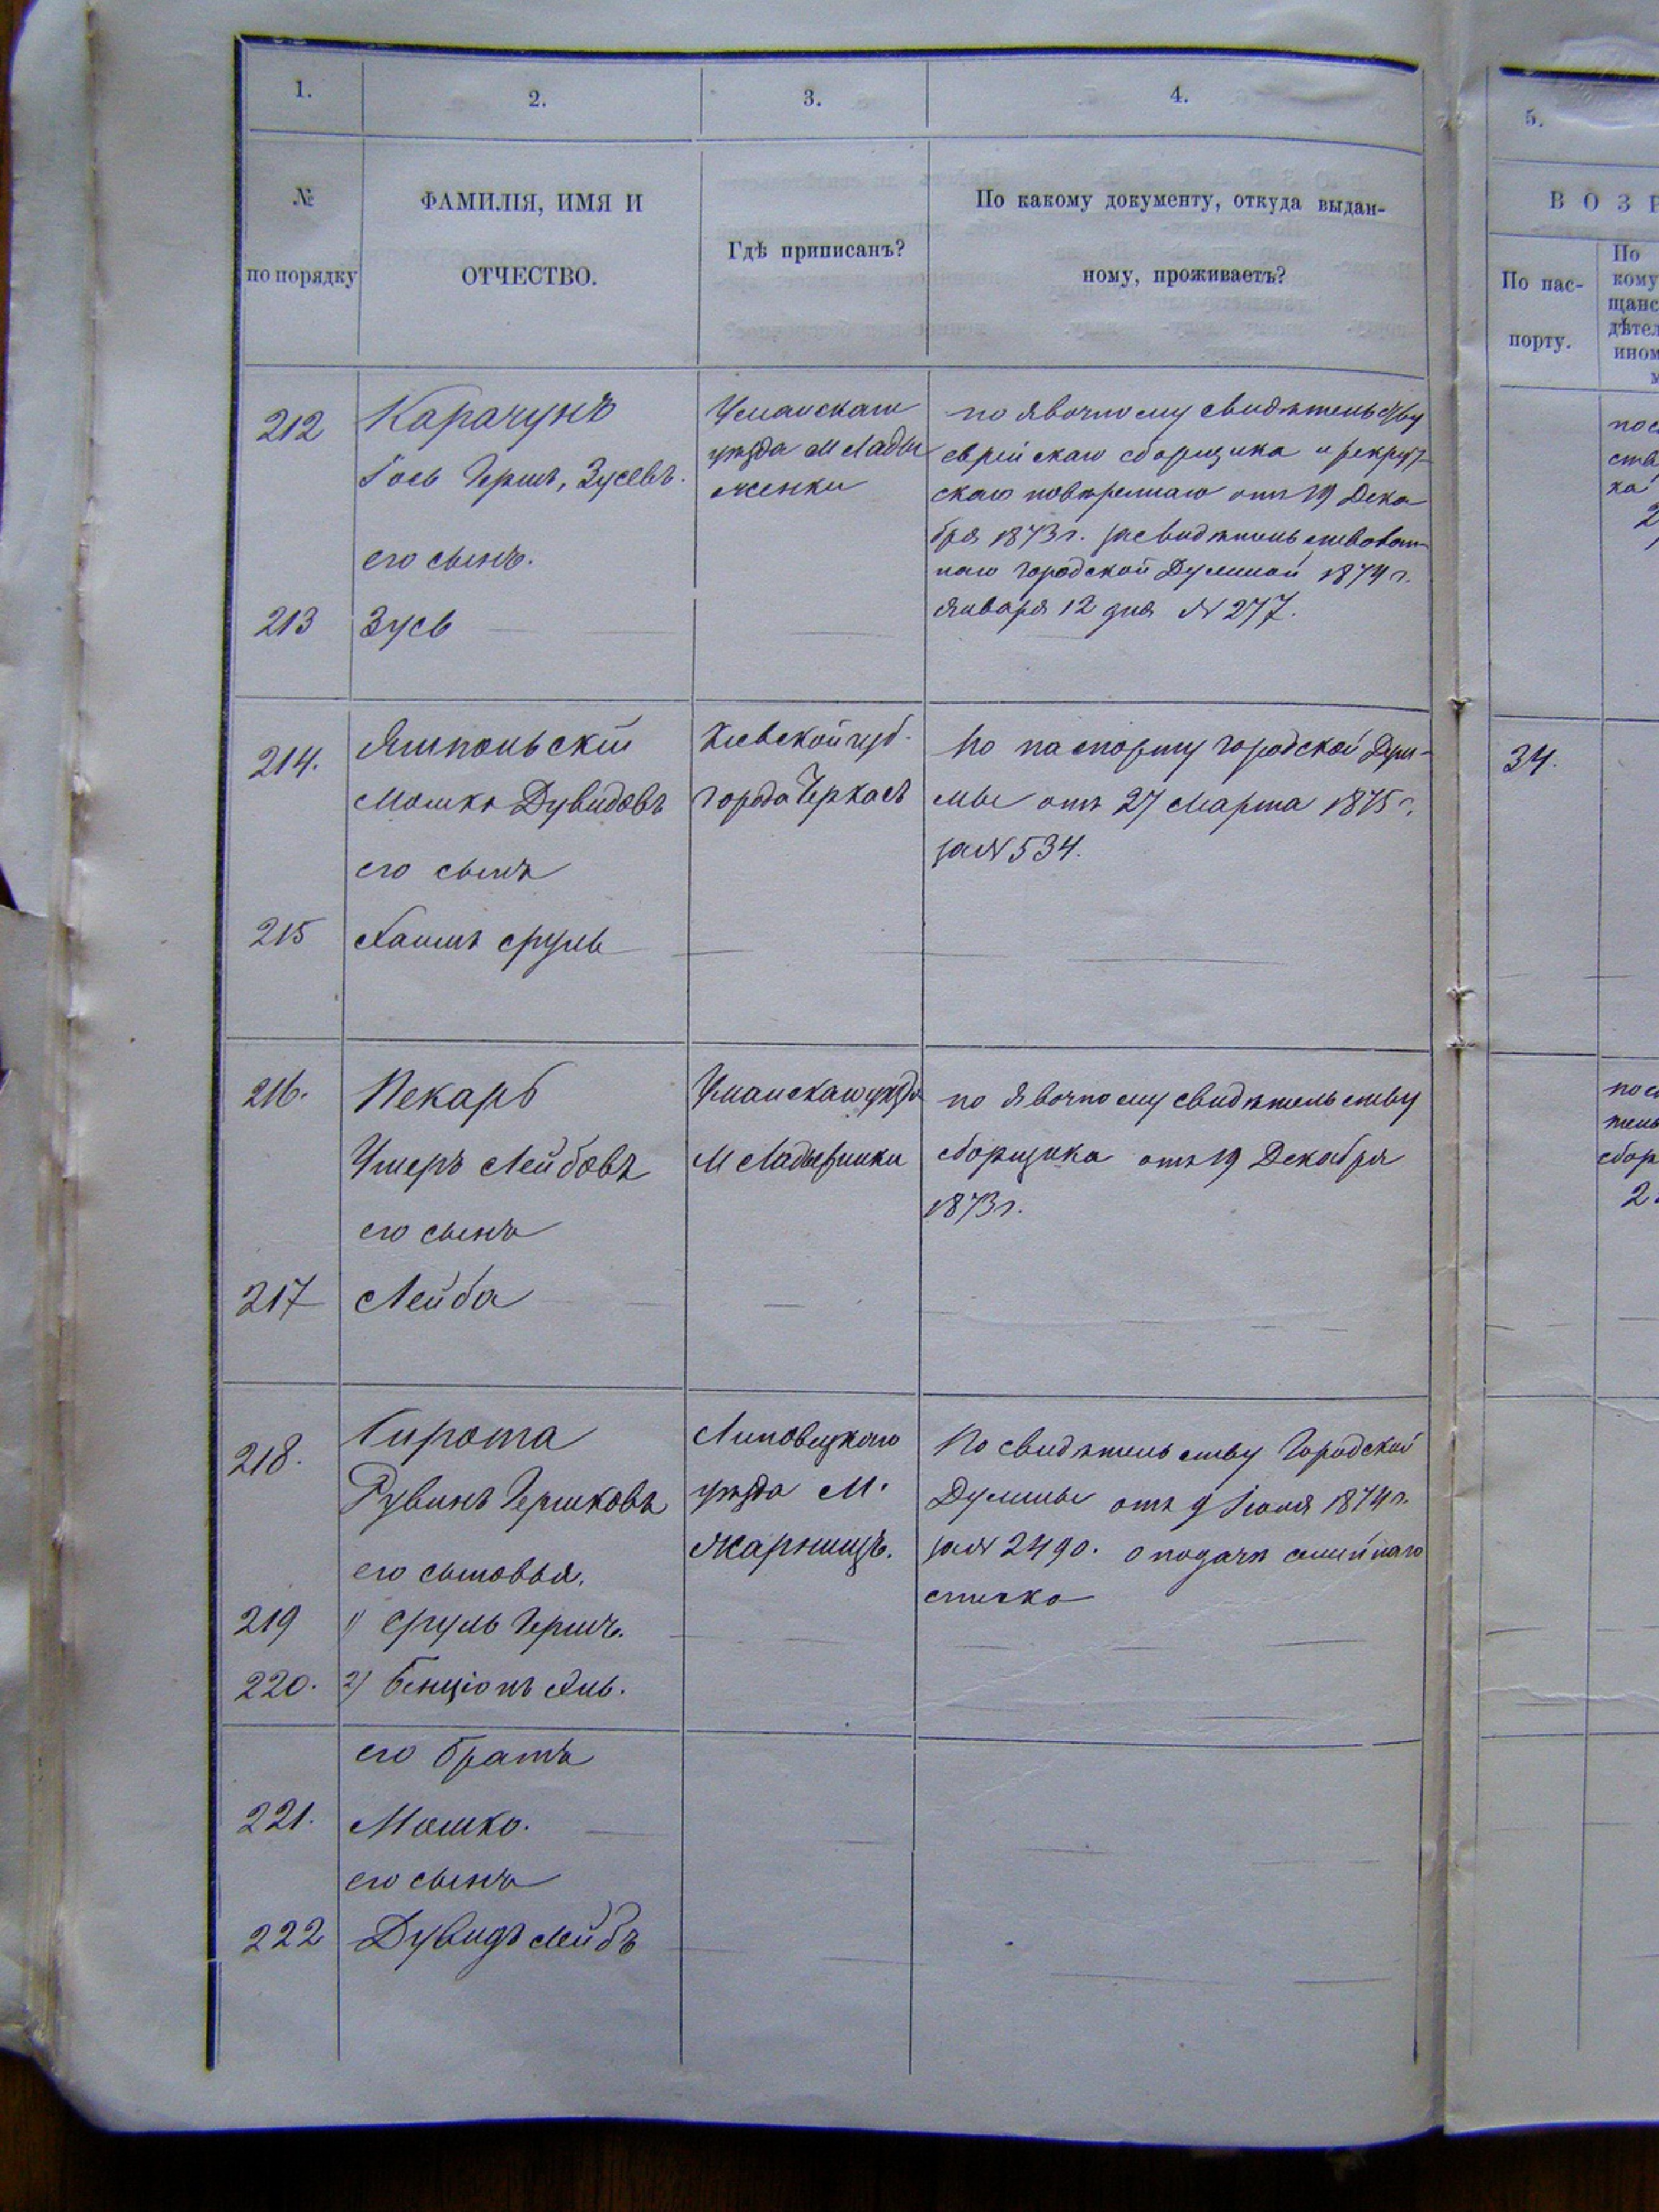 1.
2.
3.
4.
5.
№
по порядку
ФАМИЛІЯ, ИМЯ И
ОТЧЕСТВО.
Гдѣ приписанъ?
По какому документу, откуда выдан-
ному, проживаетъ?
ВОЗР
По пас-
порту.
По
кому
щанс
дѣтел
ином
212
Карачунъ
Гось Герш, Зусевъ.
его сынъ.
Уманскаго
уѣзда М Лады
женки
по явочному свидѣтельству
еврейскаго сборщика и рекрут-
скаго повѣреннаго отъ 19 Дека
бря 1873 г. засвидѣтельствован-
наго Городской Думмой 1874 г.
Января 12 дня № 277.
213
Зусь
214.
Ямпольскій
Мошко Дувидовъ
его сынъ
Кіевской губ.
города Черкасъ
По паспорту городской Дум-
мы отъ 27 Марта 1875 г.
за № 534.
34.
215
Хаимъ Сруль
216.
Пекарь
Ушеръ Лейбовъ
его сынъ
Уманскаго уѣзда
М Ладыжинки
по явочному свидѣтельству
сборщика отъ 19 Декабря
1873 г.
217
Лейба
218.
Сирота
Рувинъ Гершковъ
его сыновья.
Липовецкаго
уѣзда М.
Жорнищъ.
По свидѣтельству Городской
Думмы отъ 9 Іюля 1874 г.
за № 2490. о подачѣ семейнаго
списка
219
1) Сруль Гершъ.
220.
2) Бенціонъ
его братъ
221.
Мошко.
его сынъ
222
Дувидъ Лейбъ